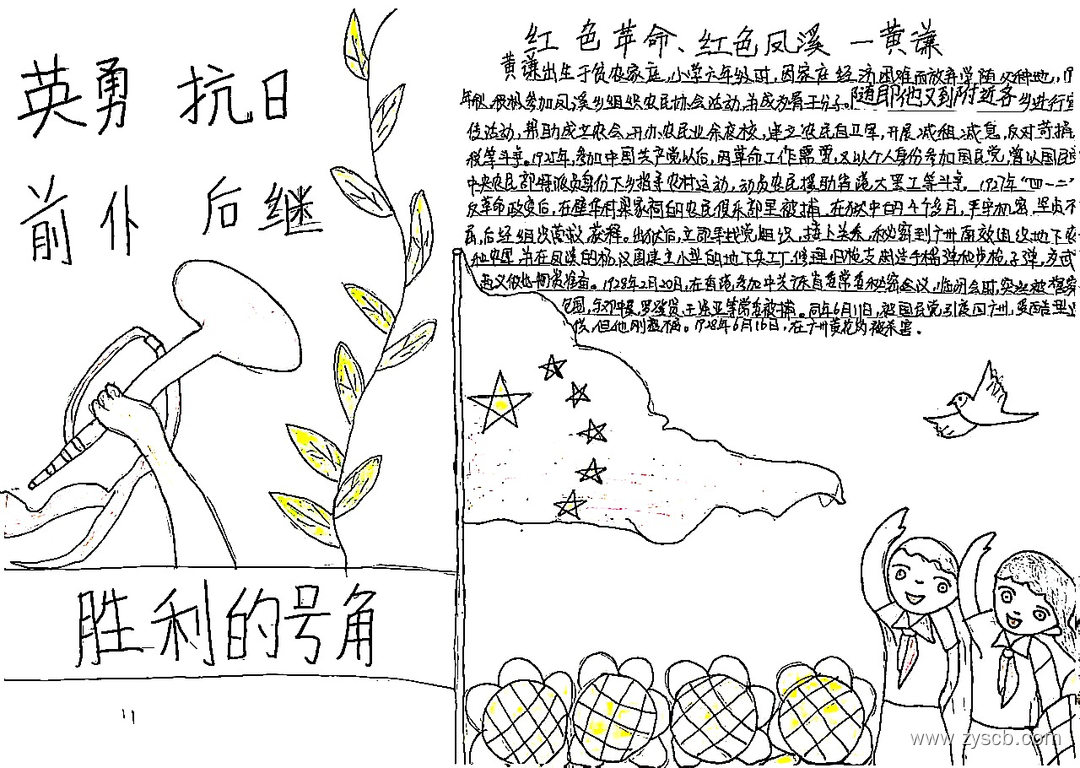 英勇 抗日
前仆 后继
胜利的号角
红色革命、红色凤溪 —黄谦
黄谦出生于贫农家庭,小学六年级时,因家庭经济困难而放弃学随父种地,
年积极参加凤溪乡组织农民协会活动,并成为骨干分子。随即他又到附近各乡进行宣
传活动,帮助成立农会,开办农民业余夜校,建立农民自卫军,开展减租减息,反对苛捐
税等斗争。1925年,参加中国共产党以后,因革命工作需要,又以个人身份参加国民党,曾以国民党
中央农民部特派员身份下乡指导农村运动,动员农民援助省港大罢工等斗争。1927年"四一二"
反革命政变后,在壁华村梁家祠的农民俱乐部里被捕。在狱中的4个多月,严守机密,坚贞不
后经组织营救获释。出狱后,立即寻找党组织,接上关系,秘密到广州南效组织地下农
并在凤溪的杨仪围建立小型的地下兵工厂修理旧枪支
1928年2月20日,在香港参加中共广东省委常委秘密会议,临闭会时,突然被警察
罗登贤、王强亚等常委被捕。同年6月11日,被国民党引渡回广州,受酷
但他刚强不 。1928年6月16日,在广州黄花岗被杀害。
www.zyscb.com